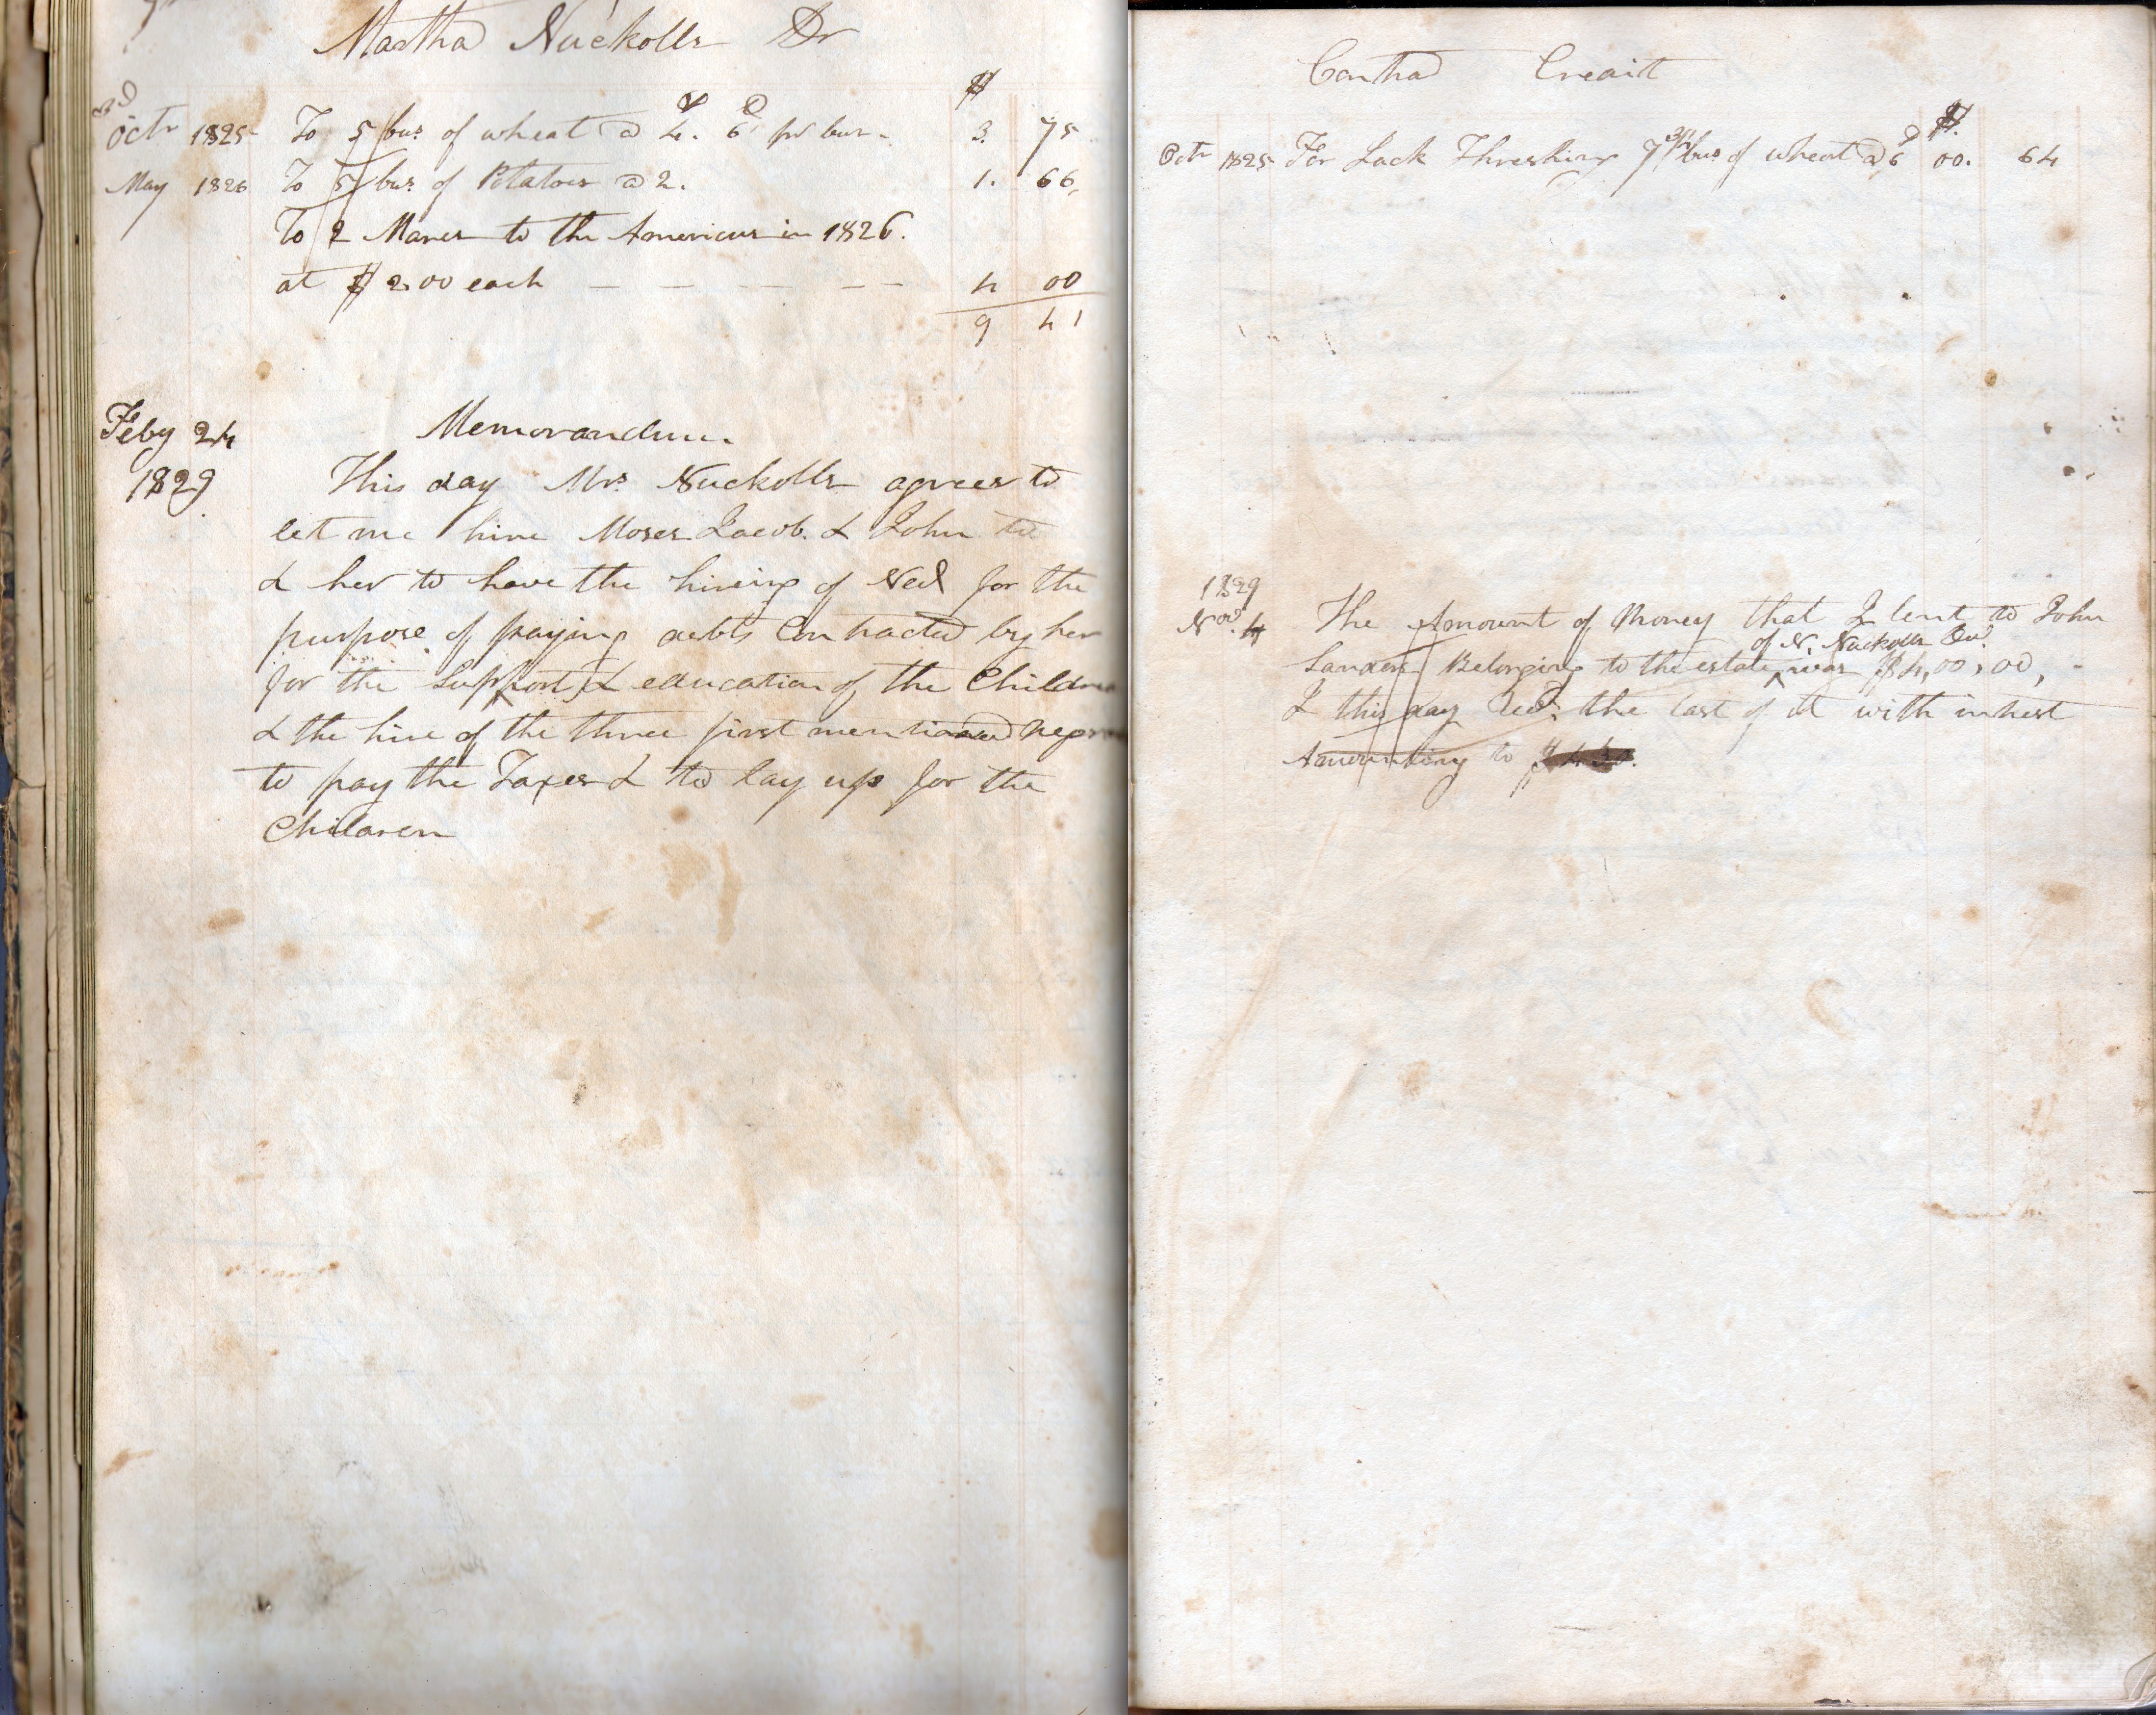 Martha Nuckolls Dr
$
3d Octr 1825 To 5 bus of wheat @ 4. 6 pr bus - 3. 75
May 1826 To 5 bus of Potatoes @ 2. 1. 66
To 2 Mares to the Americus in 1826.
at $2.00 each — — — — — 4 00
9 41
Feby 24 1829
Memorandum
This day Mrs. Nuckolls agrees to
let me hire Moses Jacob. & John to
& her to have the hireing of Ned for the
purpose of paying debts Contracted by her
for the Support & education of the Children
& the hire of the three first mentioned
to pay the Taxes & to lay up for the
Children
Contra Credit
$.
Octr 1825 For Jack Threshing 7 bus of wheat @ 6 00. 64
1829
Nov. 4 The Amount of Money that I lent to John
of N. Nuckolls Decd.
Sanders Belonging to the estate was $4,00,00, -
I this day Recd. the last of it with intrest
Amounting to